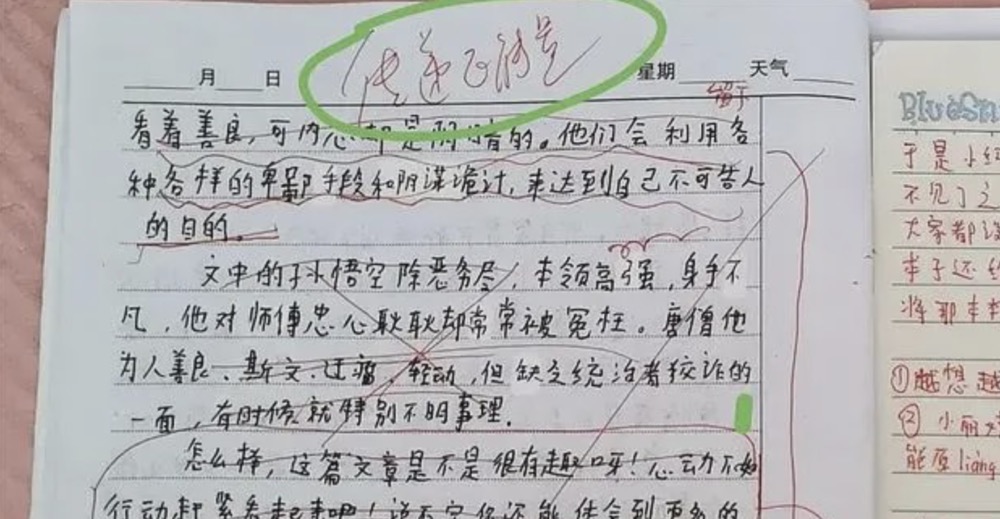 传递正能量
月 日 星期 天气
留下
看着善良,可内心却是阴暗的。他们会利用各
种各样的卑鄙手段和阴谋诡计,来达到自己不可告人
的目的。
文中的孙悟空除恶务尽,本领高强,身手不
凡,他对师傅忠心耿耿却常常被冤枉。唐僧他
为人善良、斯文、迂腐、轻动,但缺乏统治者狡诈的
一面,有时候就特别不明事理。
怎么样,这篇文章是不是很有趣呀!心动不如
行动赶紧看起来吧!说不定你还能体会到更多的
BlueSn
于是小红
不见了
大家都说
本子还给
将那本
①越想越
② 小丽
能原liàng